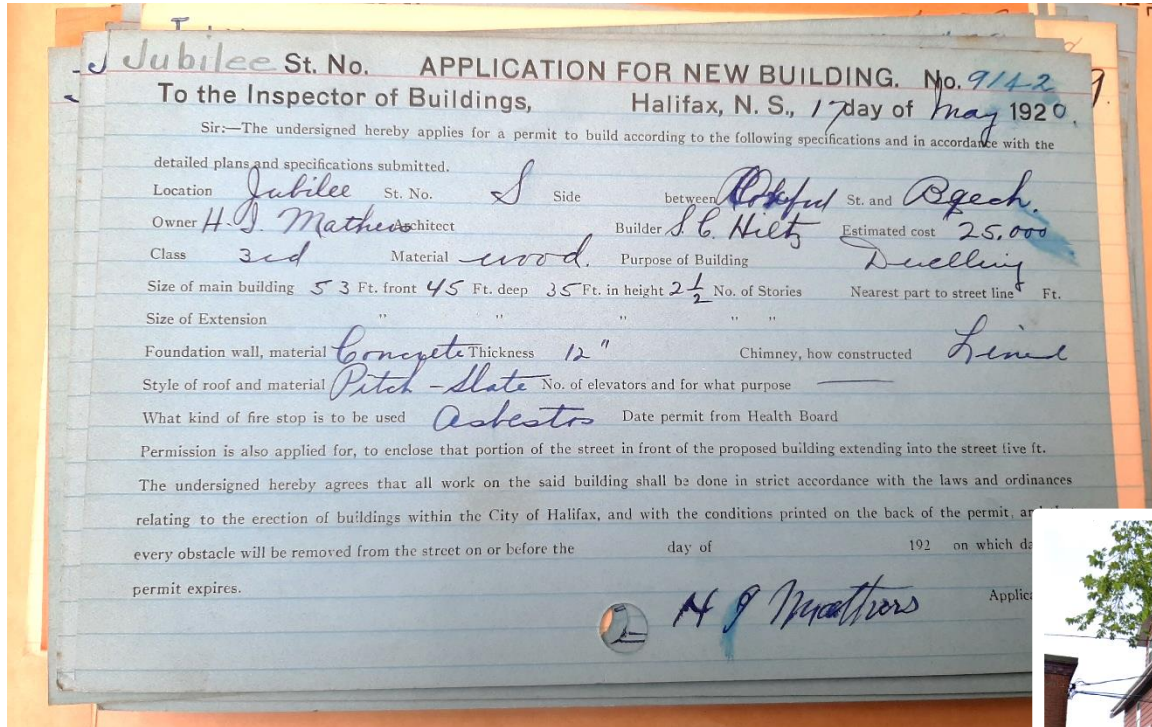 Jubilee St. No. APPLICATION FOR NEW BUILDING. No. 9142
To the Inspector of Buildings, Halifax, N. S., 17 day of May 1920.
Sir:—The undersigned hereby applies for a permit to build according to the following specifications and in accordance with the
detailed plans and specifications submitted.
Location Jubilee St. No. S Side between St. and Beech.
Owner H. I. Mathers Architect Builder S. C. Hiltz Estimated cost 25,000
Class 3rd Material wood. Purpose of Building Dwelling
Size of main building 53 Ft. front 45 Ft. deep 35 Ft. in height 2 1/2 No. of Stories Nearest part to street line Ft.
Size of Extension " " " " "
Foundation wall, material Concrete Thickness 12" Chimney, how constructed Lined
Style of roof and material Pitch - Slate No. of elevators and for what purpose —
What kind of fire stop is to be used Asbestos Date permit from Health Board
Permission is also applied for, to enclose that portion of the street in front of the proposed building extending into the street five ft.
The undersigned hereby agrees that all work on the said building shall be done in strict accordance with the laws and ordinances
relating to the erection of buildings within the City of Halifax, and with the conditions printed on the back of the permit,
every obstacle will be removed from the street on or before the day of 192 on which
permit expires.
H I Mathers